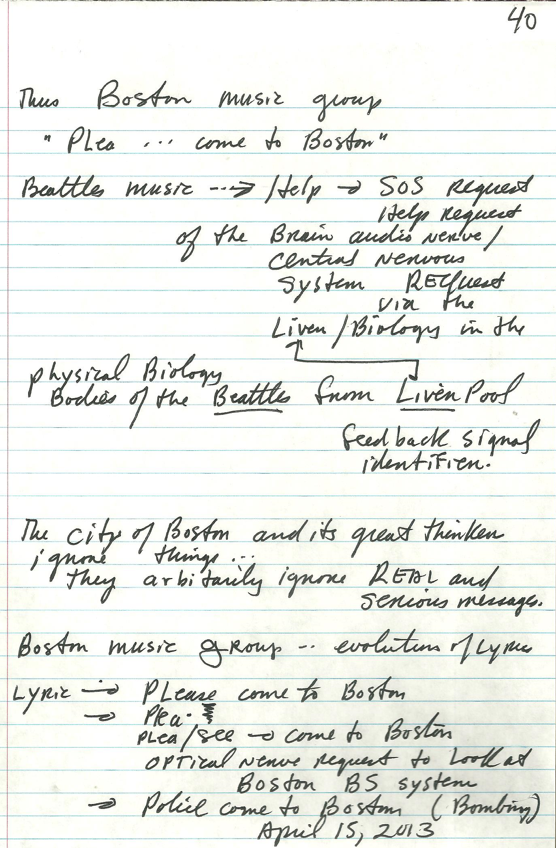 40
Thus Boston music group
"Plea ... come to Boston"
Beattles music ---> /Help → SOS Request
Help request
of the Brain audio nerve/
central nervous
system REQuest
via the
Liver/Biology in the
physical Biology
Bodies of the Beattles from LiverPool
feedback signal
identifier.
The city of Boston and its great thinker
ignore things...
they arbitarily ignore REAL and
serious messages.
Boston music group -- evolution of Lyric
Lyric → PLease come to Boston
→ Plea.
PLea/see → come to Boston
OPTical nerve request to Look at
Boston BS system
→ Police come to Boston (Bombing)
April 15, 2013